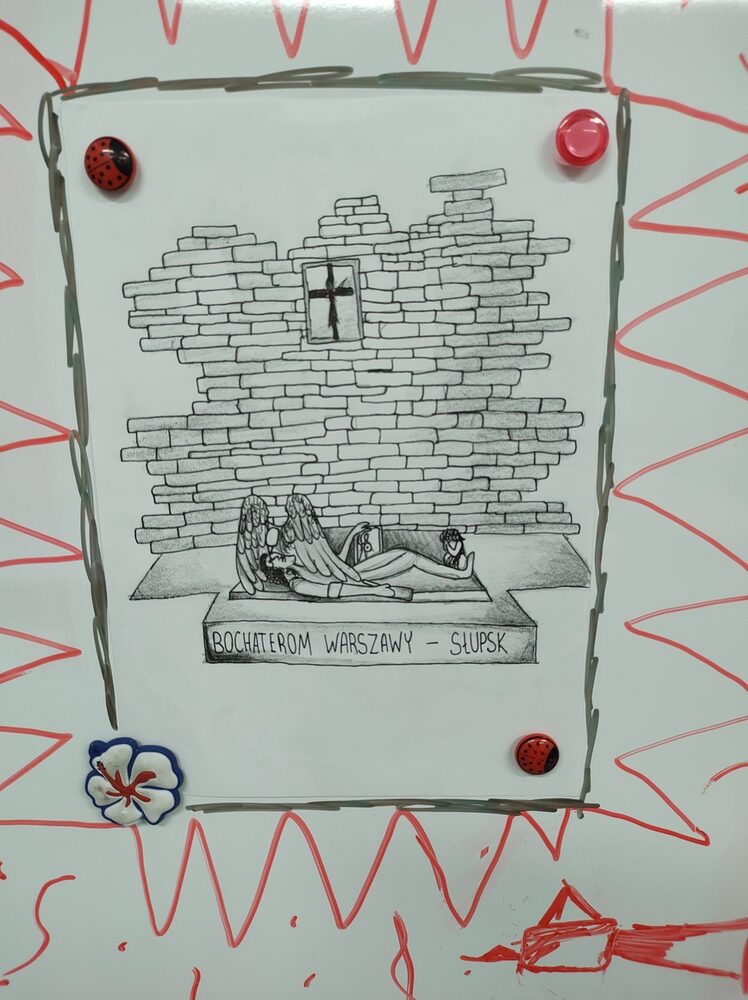 BOCHATEROM WARSZAWY – SŁUPSK